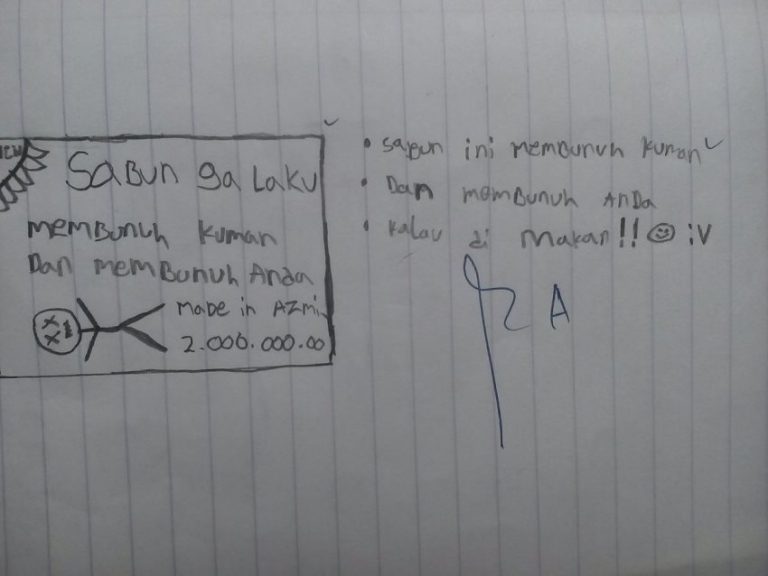 SABUN ga LaKU
memBunuh kuman
Dan memBunuh Anda
made in AZmi
2.000.000.00
• sabun ini membunuh kuman
• Dan membunuh Anda
• kalau di makan!! ☺ :V
A